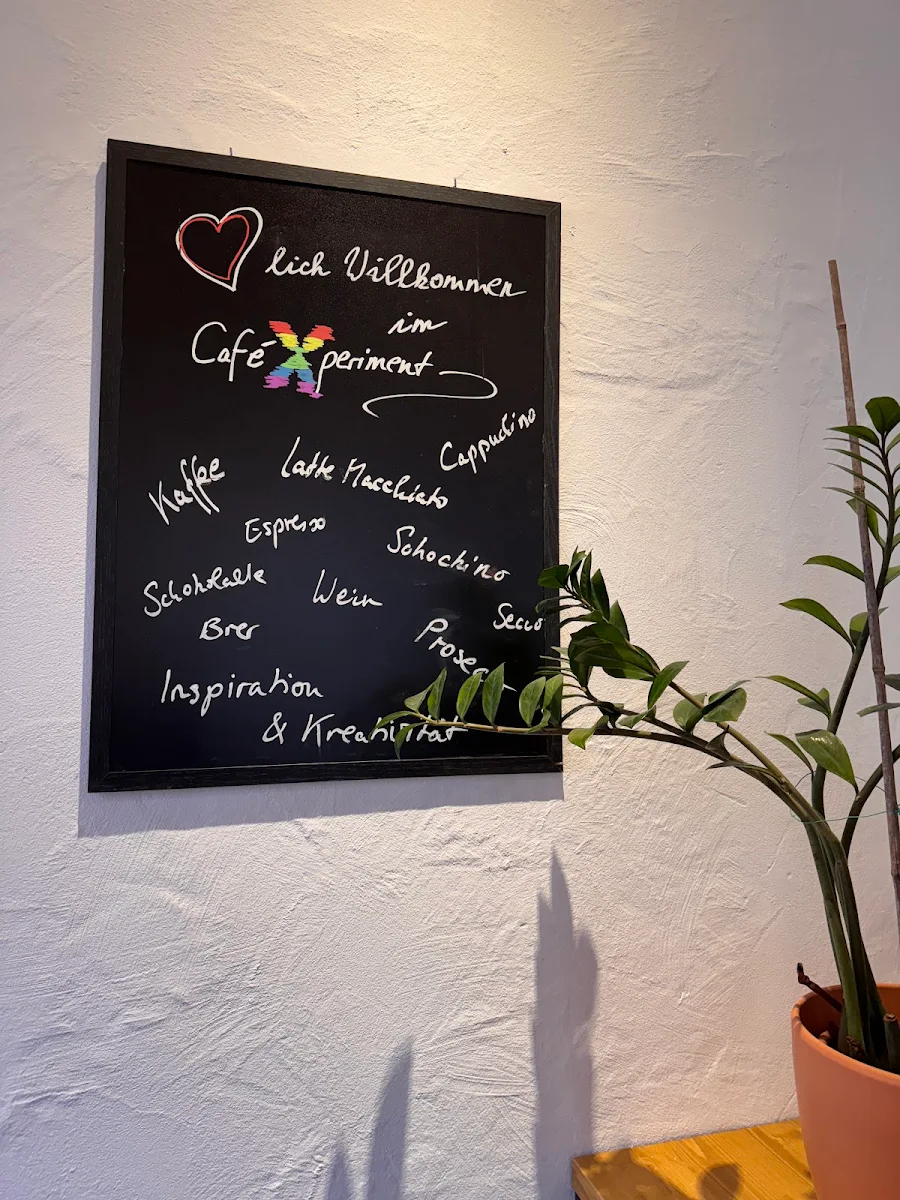 lich Willkommen
im
Café Xperiment
Cappuccino
Latte Macchiato
Kaffee
Espresso
Schochino
Schokolade
Wein
Secco
Bier
Inspiration
& Kreativität